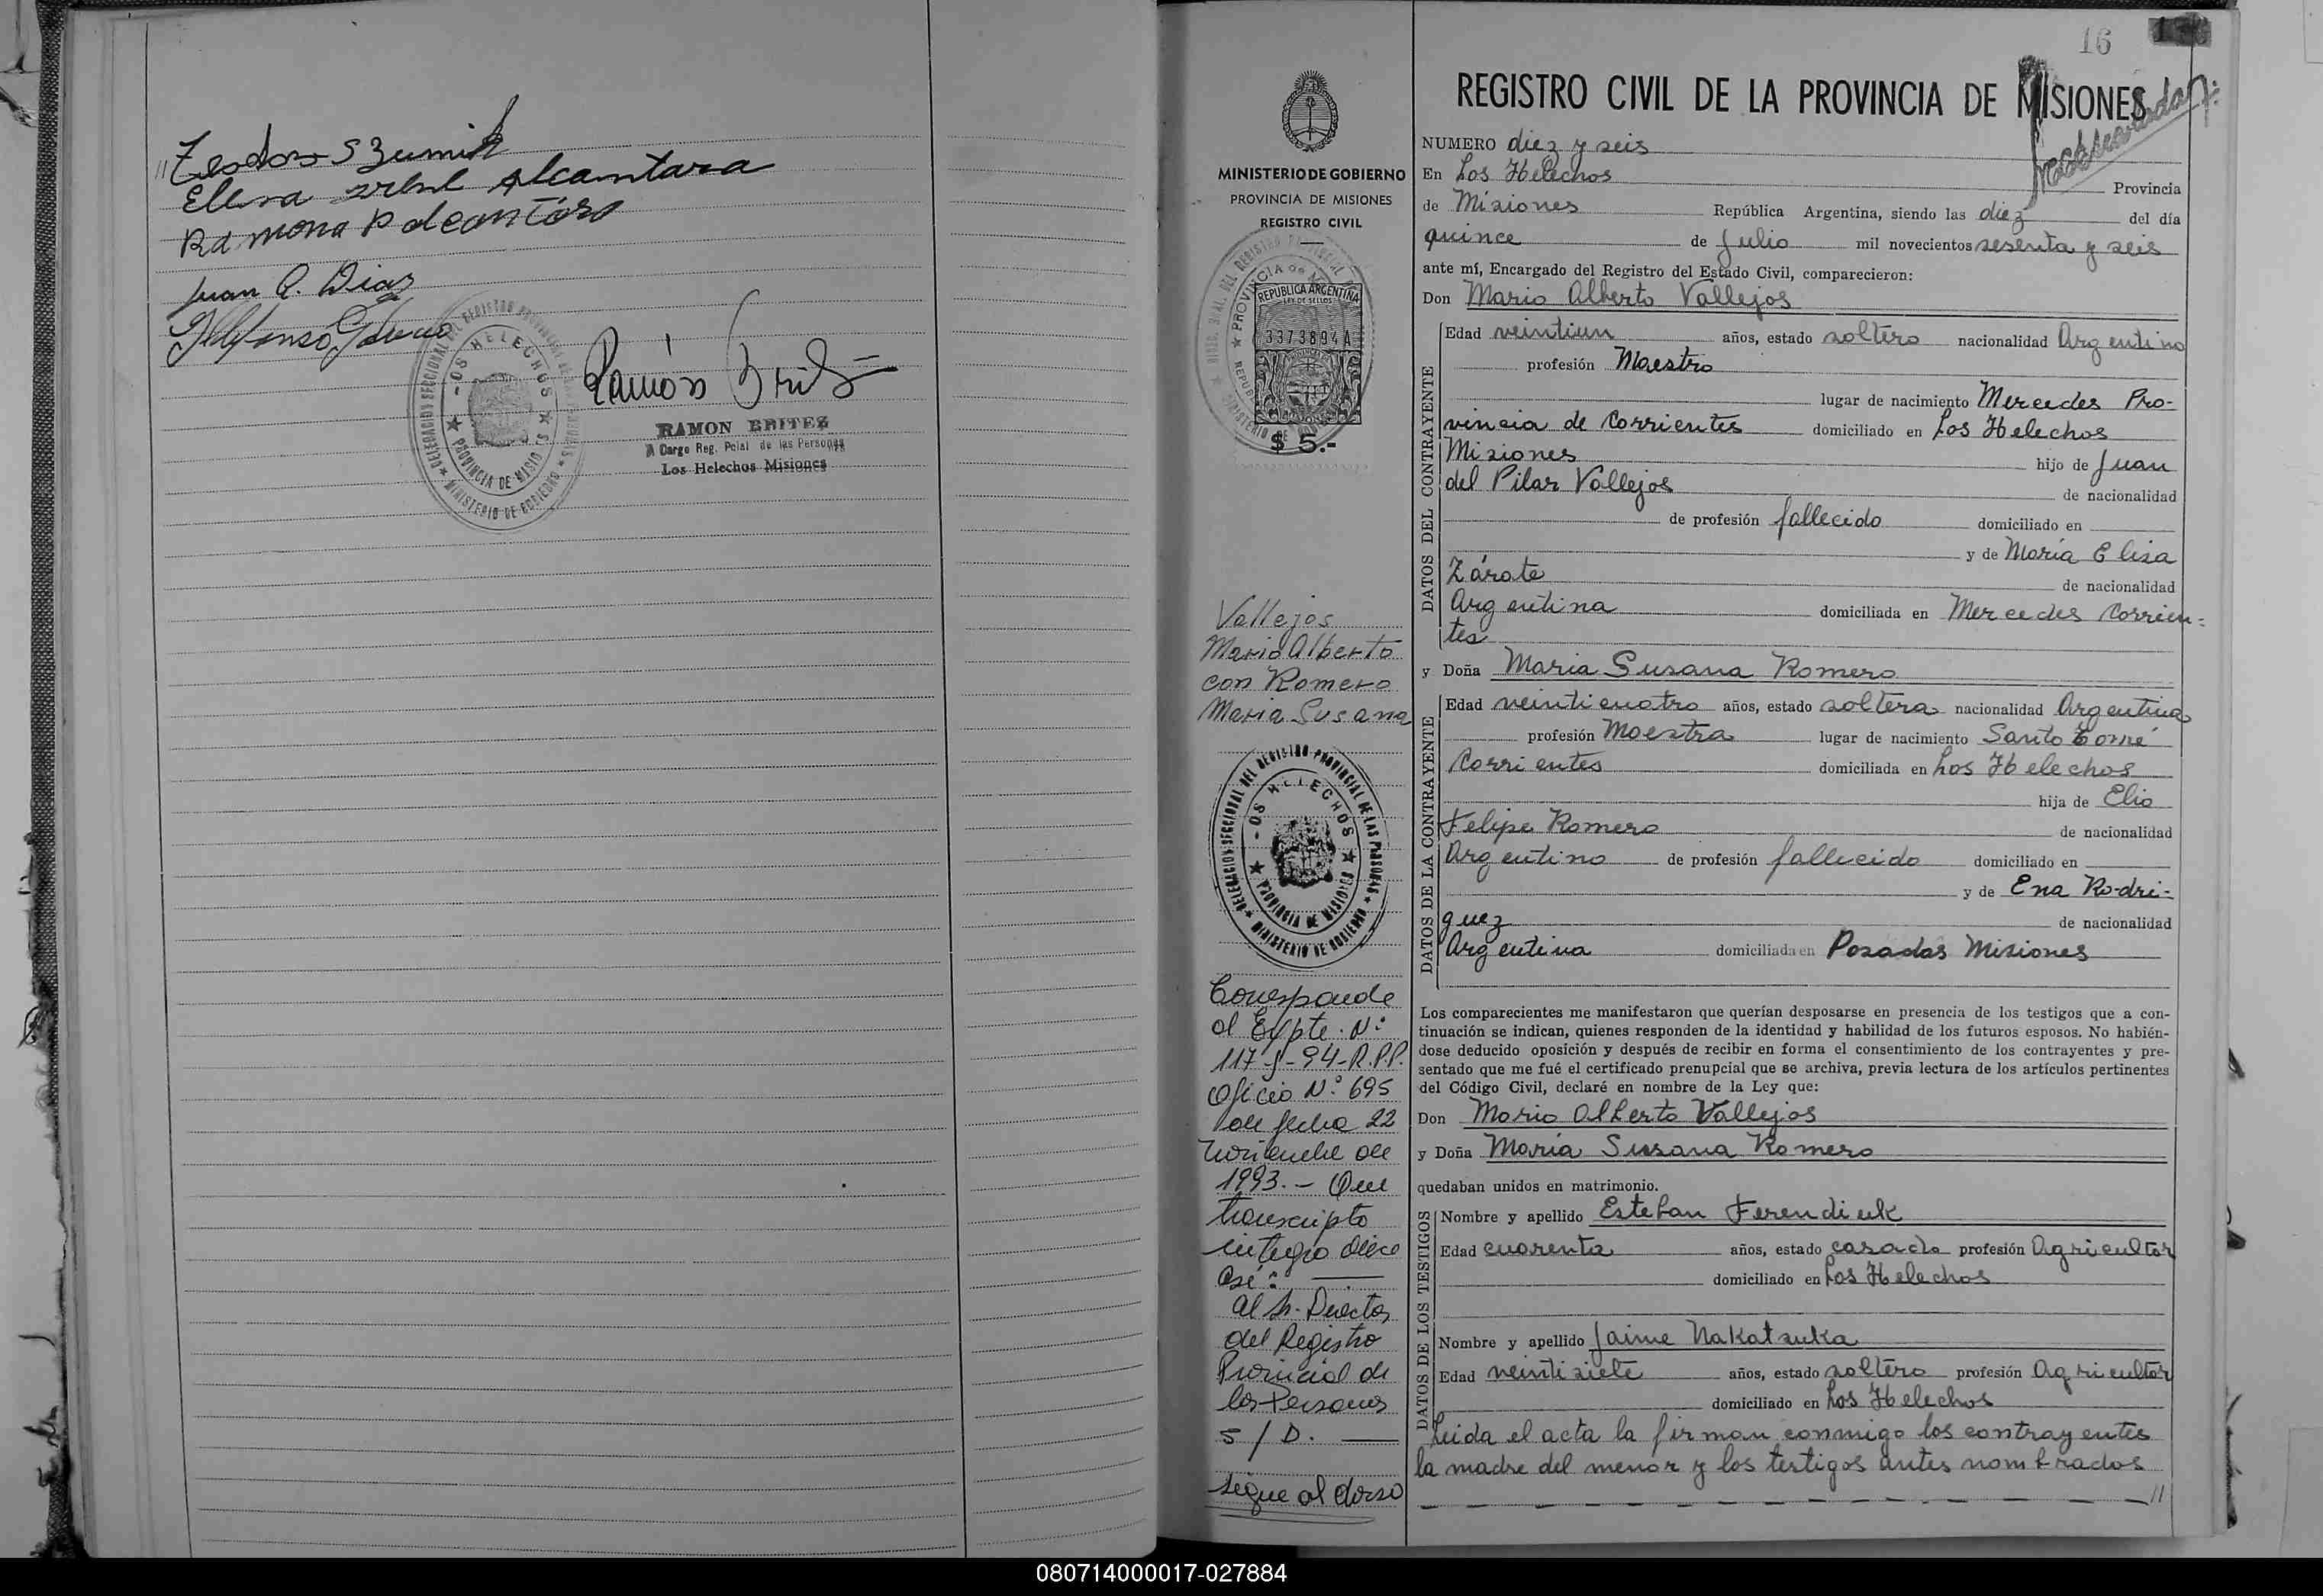 Teodoro Szumik
Elena Alcantara
Ramona P de
Juan Q. Diaz
Ildefonso
DELEGACION SECCIONAL DEL REGISTRO PROVINCIAL DE LAS PERSONAS
LOS HELECHOS
PROVINCIA DE MISIONES
MINISTERIO DE GOBIERNO
Ramón Britez
RAMON BRITEZ
A Cargo Reg. Pcial de las Personas
Los Helechos Misiones
16
MINISTERIO DE GOBIERNO
PROVINCIA DE MISIONES
REGISTRO CIVIL
REPUBLICA ARGENTINA
LEY DE SELLOS
3373894 A
$ 5.-
Vallejos
Mario Alberto
con Romero
Maria Susana
DELEGACION SECCIONAL DEL REGISTRO PROVINCIAL DE LAS PERSONAS
LOS HELECHOS
PROVINCIA DE MISIONES
MINISTERIO DE GOBIERNO
Corresponde
al Expte. Nº
117-J-94-R.P.P.
Oficio Nº 695
de fecha 22
Noviembre de
1993.- Que
transcripto
integro dice
Así:
Al Sr. Director
del Registro
Provincial de
las Personas
S/D.
Sigue al dorso
REGISTRO CIVIL DE LA PROVINCIA DE MISIONES
NUMERO diez y seis
En Los Helechos Provincia
de Misiones República Argentina, siendo las diez del día
quince de Julio mil novecientos sesenta y seis
ante mí, Encargado del Registro del Estado Civil, comparecieron:
Don Mario Alberto Vallejos
DATOS DEL CONTRAYENTE
Edad veintiun años, estado soltero nacionalidad Argentino
profesión Maestro
lugar de nacimiento Mercedes Pro-
vincia de Corrientes domiciliado en Los Helechos
Misiones hijo de Juan
del Pilar Vallejos de nacionalidad
de profesión fallecido domiciliado en
y de María Elisa
Zárate de nacionalidad
Argentina domiciliada en Mercedes Corrien-
tes
y Doña Maria Susana Romero
DATOS DE LA CONTRAYENTE
Edad veinticuatro años, estado soltera nacionalidad Argentina
profesión Maestra lugar de nacimiento Santo Tomé
Corrientes domiciliada en Los Helechos
hija de Elio
Felipe Romero de nacionalidad
Argentino de profesión fallecido domiciliado en
y de Ena Rodri-
guez de nacionalidad
Argentina domiciliada en Posadas Misiones
Los comparecientes me manifestaron que querían desposarse en presencia de los testigos que a con-
tinuación se indican, quienes responden de la identidad y habilidad de los futuros esposos. No habién-
dose deducido oposición y después de recibir en forma el consentimiento de los contrayentes y pre-
sentado que me fué el certificado prenupcial que se archiva, previa lectura de los artículos pertinentes
del Código Civil, declaré en nombre de la Ley que:
Don Mario Alberto Vallejos
y Doña María Susana Romero
quedaban unidos en matrimonio.
DATOS DE LOS TESTIGOS
Nombre y apellido Esteban Ferendiuk
Edad cuarenta años, estado casado profesión Agricultor
domiciliado en Los Helechos
Nombre y apellido Jaime Nakatsuka
Edad veintisiete años, estado soltero profesión Agricultor
domiciliado en Los Helechos
Leida el acta la firman conmigo los contrayentes
la madre del menor y los testigos antes nombrados
//
080714000017-027884